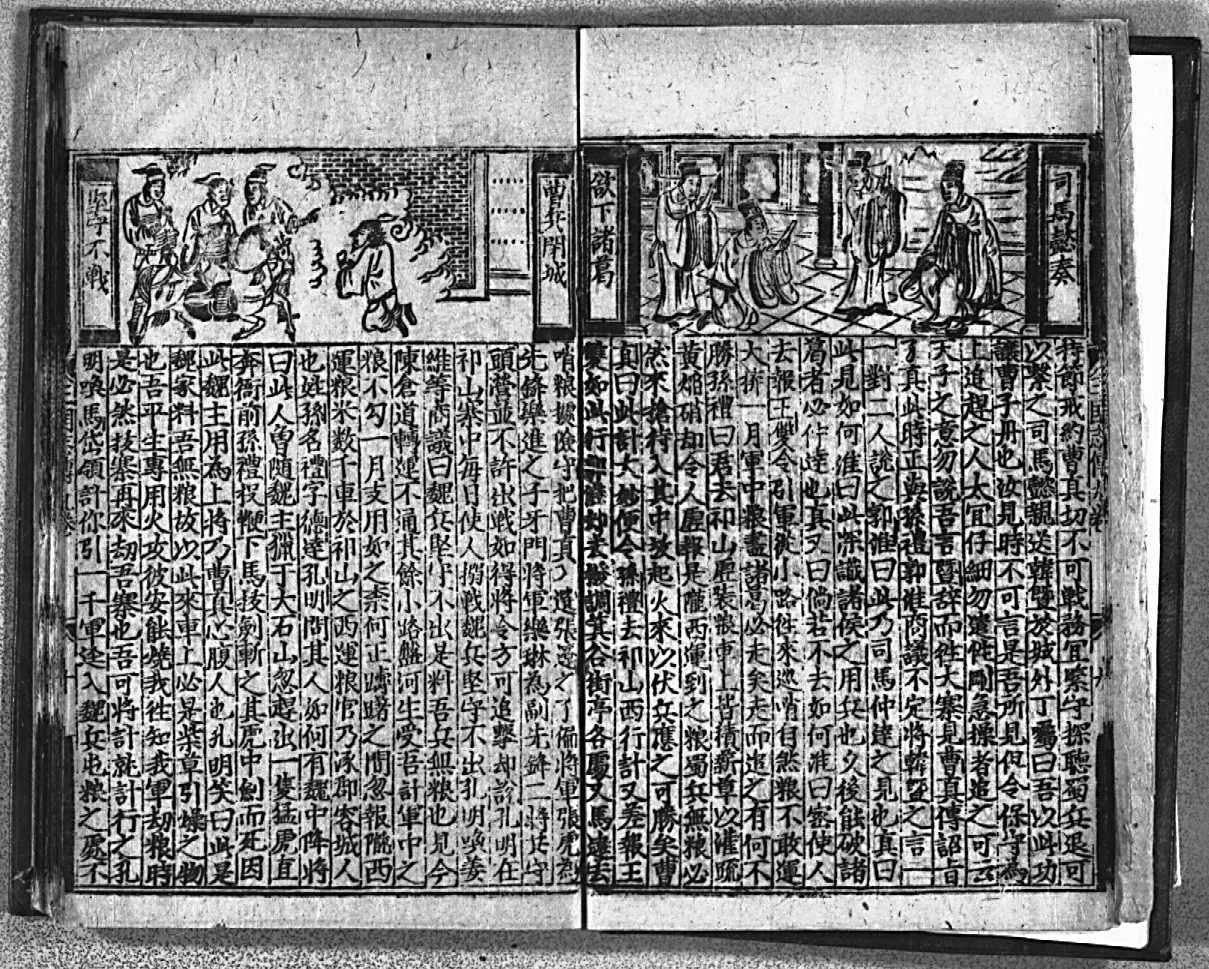 司馬懿奏
欲下諸葛
持節戒約曹真切不可戰務宜緊守探聽蜀兵退可
以擊之司馬懿親送韓暨於城外丁囑曰吾以此功
讓曹子丹也汝見時不可言是吾所見但令保守為
上追趕之人太宜仔細勿遣性剛急操者追之可
天子之意勿說吾言暨辞而往大寨見曹真傳詔旨
了真此時正與孫禮郭淮商議不定將韓暨之言一
一對二人說之郭淮曰此乃司馬仲達之見也真曰
此見如何淮曰此深識諸侯之用兵也久後能破諸
葛者必仲達也真又曰倘若不去如何淮曰密使人
去報王雙令引軍從小路徃來巡哨自然粮不敢運
大拼一月軍中粮盡諸葛必走矣走而追之有何不
勝孫禮曰君去祁山虛裝粮車上皆積薪草以灌硫
黄焰硝却令人虛報是隴西運到之粮蜀兵無粮必
然來搶待入其中放起火來以伏兵應之可勝矣曹
真曰此計大妙便令孫禮去祁山西行計又差報王
雙如此行郭淮却去撥調箕谷街亭各屬又馬遼去
曹兵閉城
堅守不戰
哨粮據險守把曹真又遣張遼之了偏將軍張虎為
先鋒樂進之子牙門將軍樂琳為副先鋒二將共守
頭營並不許出戰如得將令方可追擊却說孔明在
祁山寨中每日使人搦戰魏兵堅守不出孔明喚姜
維等商議曰魏兵堅守不出是料吾兵無粮也見今
陳倉道轉運不通其餘小路盤河生受吾計軍中之
粮不勾一月支用如之柰何正躊躇之間忽報隴西
運粮米数千車於祁山之西運粮官乃涿郡容城人
也姓孫名禮字德達孔明問其人如何有魏中降將
曰此人曽随魏主獵于大石山忽趕出一隻猛虎直
奔衙前孫禮投鞭下馬技劍斬之其虎中劍而死因
此魏主用為上將乃曹真心腹人也孔明笑曰此是
魏家料吾無粮故以此來車上必是柴草引燥之物
也吾平生專用火攻彼安能燒我徃知我軍刧粮時
是必然技寨再來刼吾寨也吾可將計就計行之孔
明喚馬岱領計你引一千軍逕入魏兵屯粮之處不